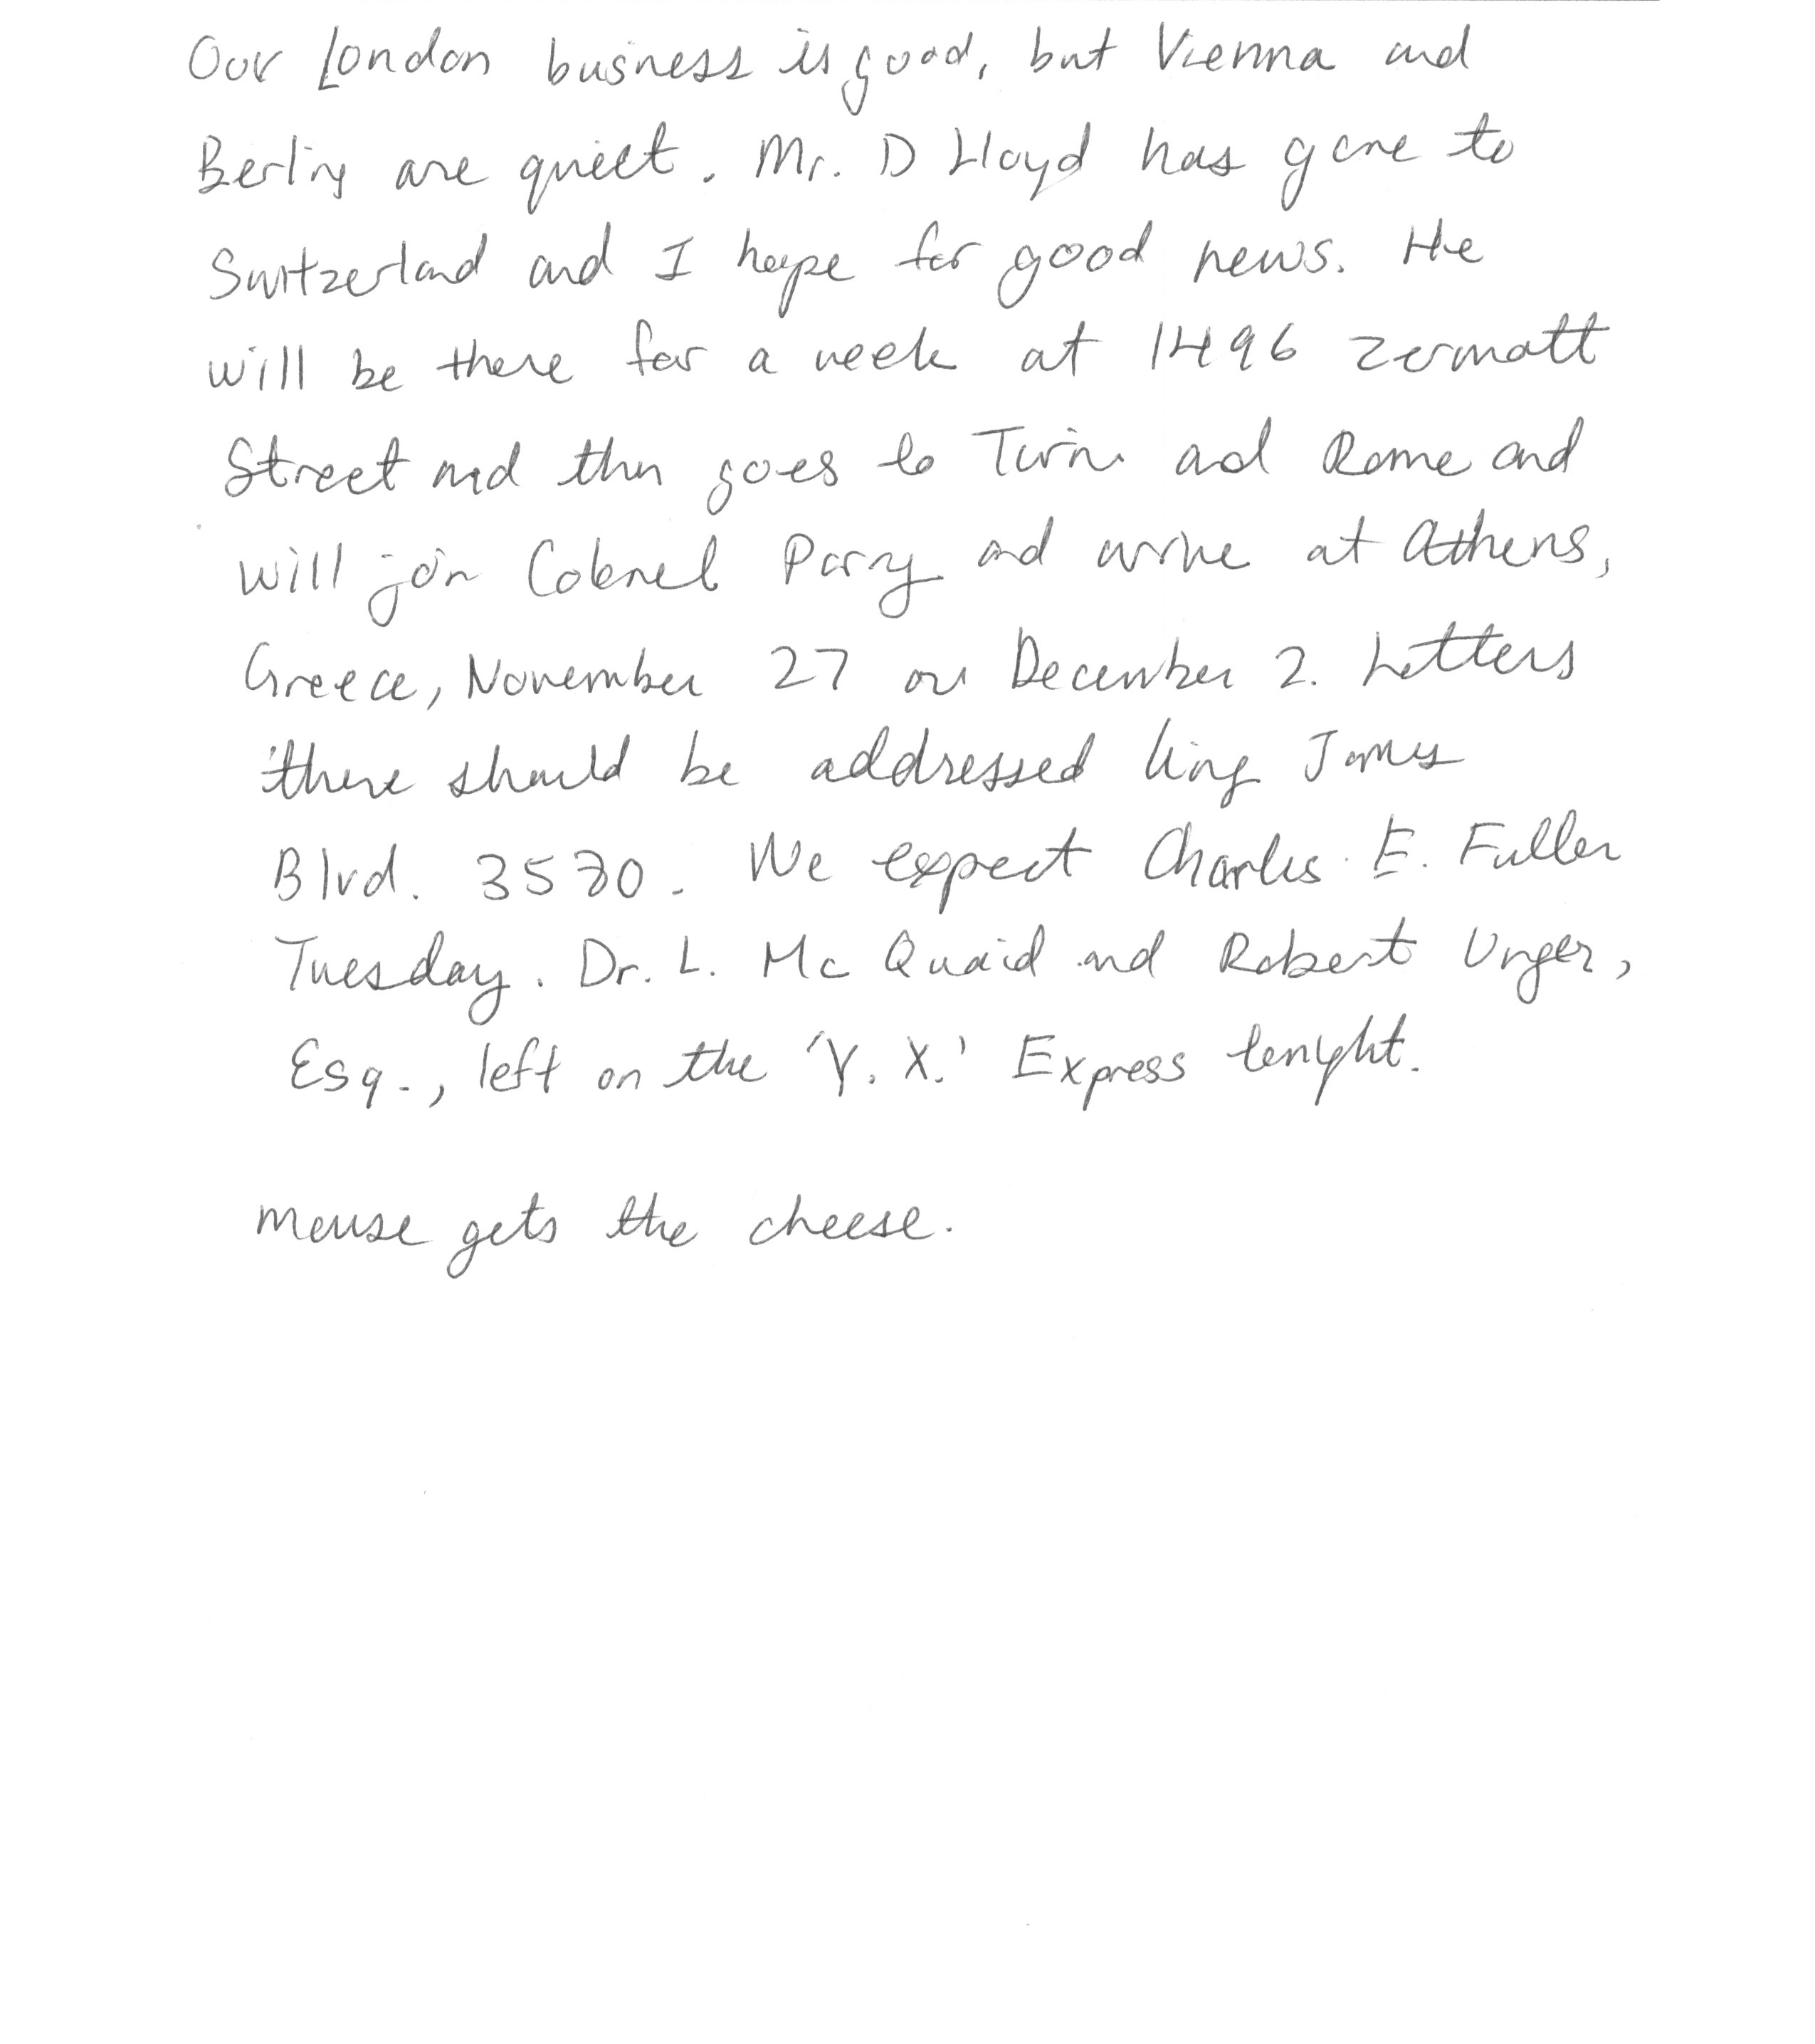 Our London business is good, but Vienna and
Berlin are quiet. Mr. D Lloyd has gone to
Switzerland and I hope for good news. He
will be there for a week at 1496 Zermatt
Street and then goes to Turin and Rome and
will join Colonel Parry and arrive at Athens,
Greece, November 27 or December 2. Letters
there should be addressed King James
Blvd. 3580. We expect Charles E. Fuller
Tuesday. Dr. L. Mc Quaid and Robert Unger,
Esq., left on the 'Y. X.' Express tonight.
mouse gets the cheese.